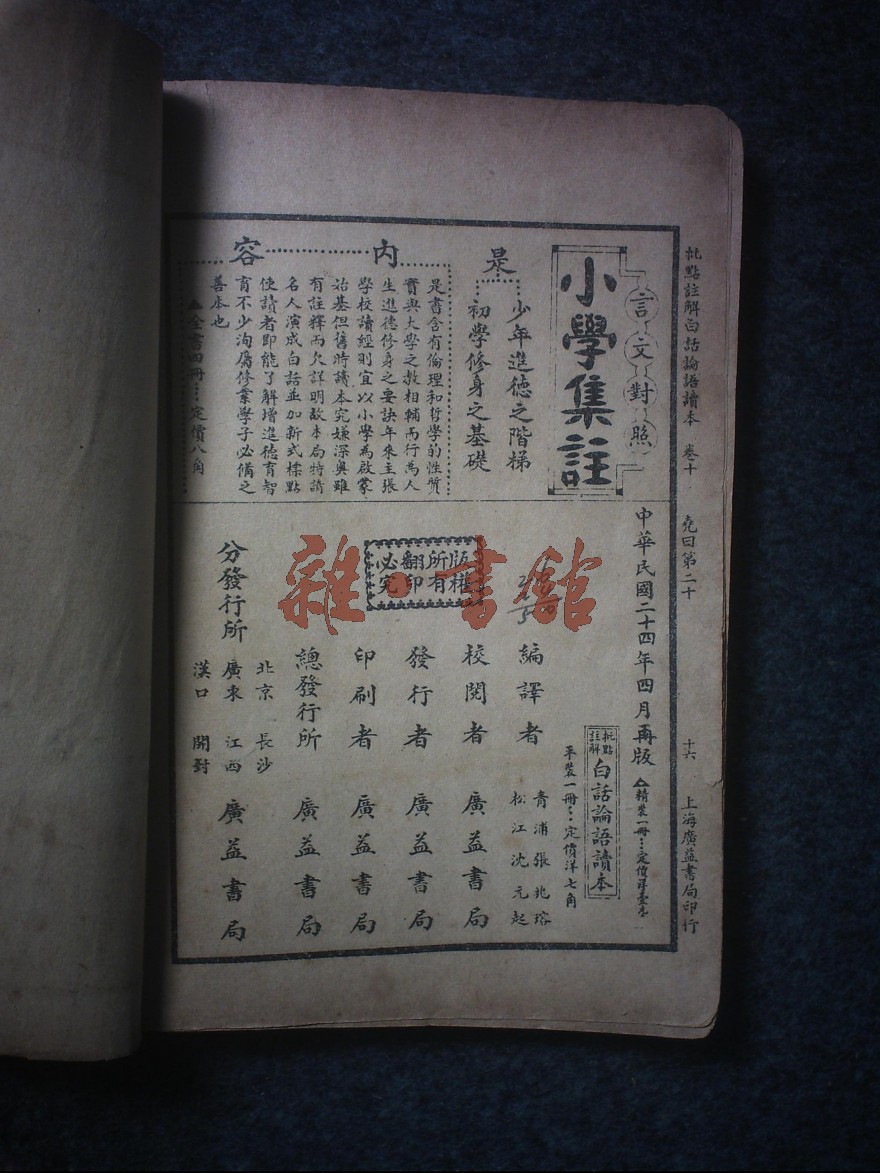 批點註解白話論語讀本 卷十 堯曰第二十 十六 上海廣益書局印行
言文對照
小學集註
是
少年進德之階梯
初學修身之基礎
內容
是書含有倫理和哲學的性質
實與大學之教相輔而行為人
生進德修身之要訣年來主張
學校讀經則宜以小學為啟蒙
始基但舊時讀本究嫌深奧雖
有註釋而欠詳明故本局特請
名人演成白話並加新式標點
使讀者即能了解增進德育智
育不少洵屬修業學子必備之
善本也
▲全書四冊…定價八角
中華民國二十四年四月再版
▲精裝一冊…定價洋壹元
批點註解
白話論語讀本
平裝一冊…定價洋七角
編譯者
青浦張兆瑢
松江沈元起
校閱者 廣益書局
發行者 廣益書局
印刷者 廣益書局
總發行所 廣益書局
版權所有翻印必究
分發行所
北京 長沙
廣東 江西
漢口 開封
廣益書局
雜·書館